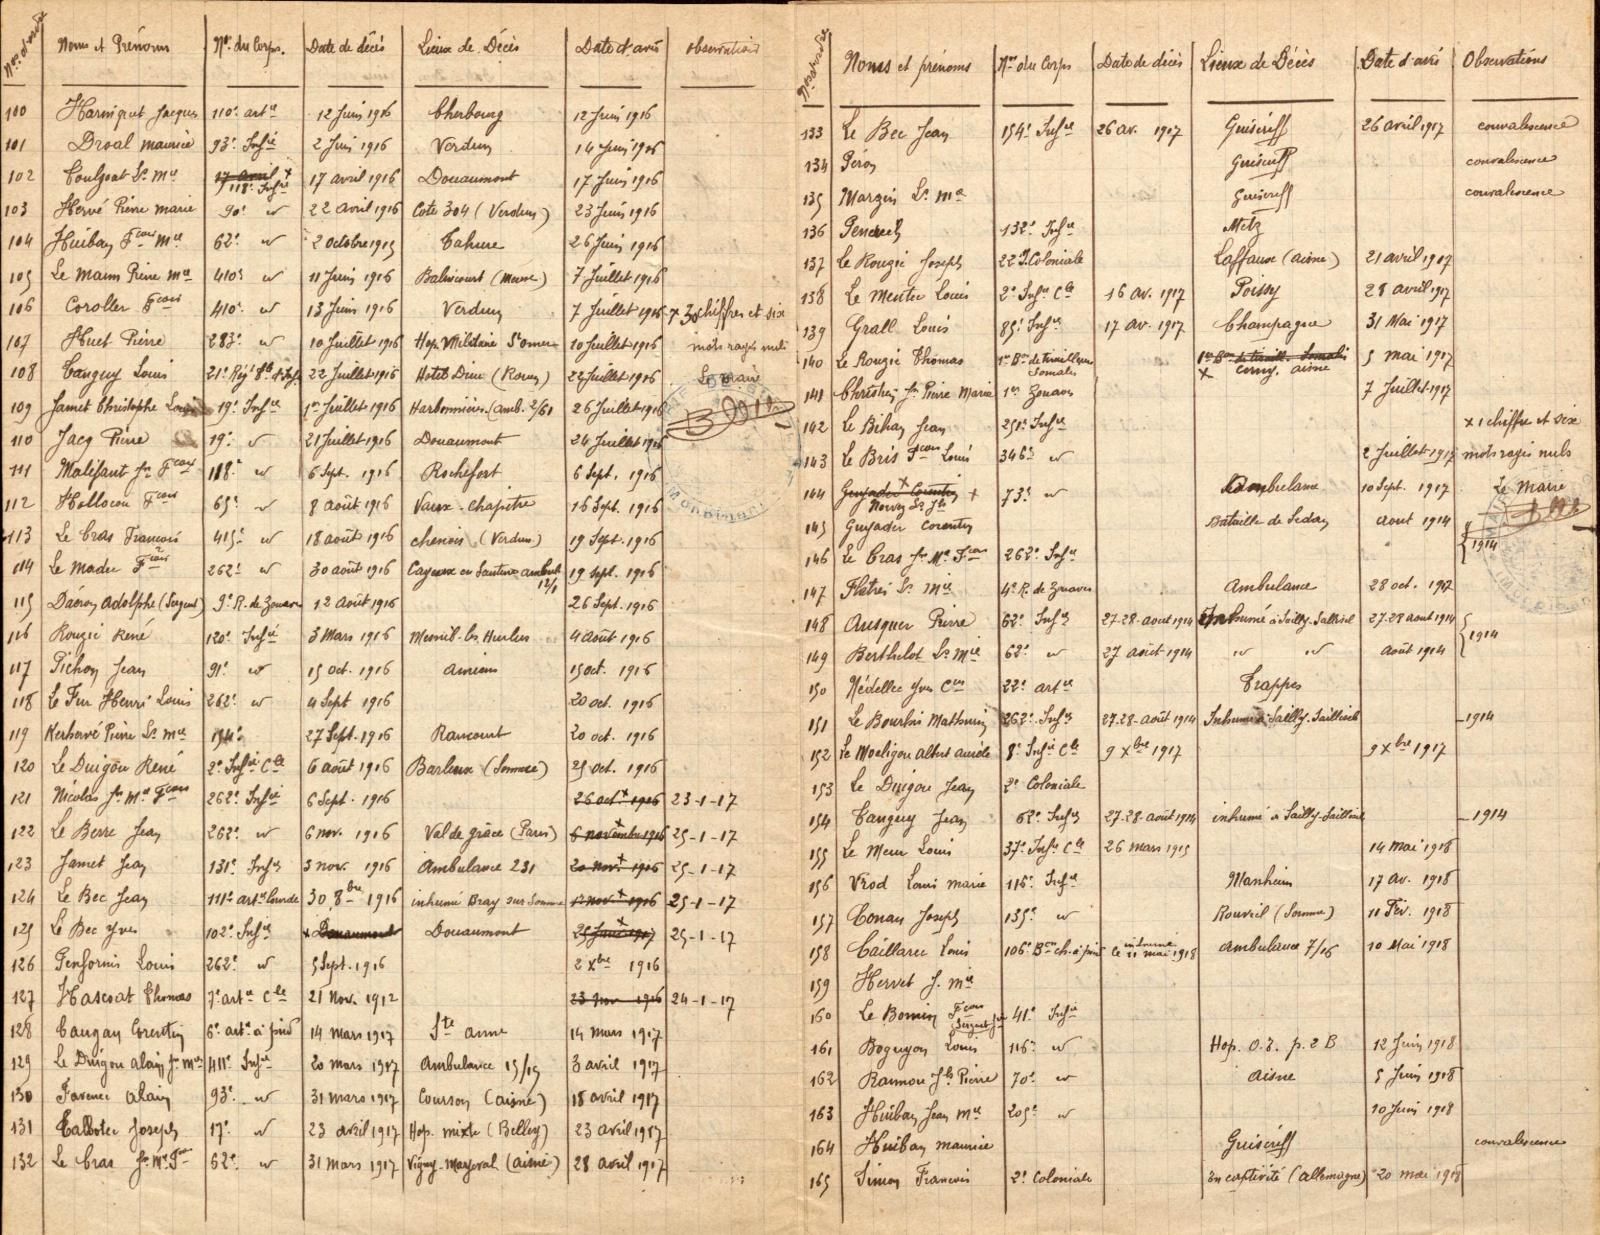 Nos d'ordre Noms et Prénoms Nos du Corps. Date de décès Lieux de Décès Date d'avis Observations
100 Harniquet Jacques 110e artie 12 Juin 1916 Cherbourg 12 Juin 1916
101 Droal Maurice 93e Infie 2 Juin 1916 Verdun 14 Juin 1916
102 Coulzoat Ls Mie 17 avril x
118e Infie 17 avril 1916 Douaumont 17 Juin 1916
103 Hervé Pierre Marie 90e id 22 avril 1916 Cote 304 (Verdun) 23 Juin 1916
104 Huiban Fcois Mie 62e id 2 octobre 1915 Tahure 26 Juin 1916
105 Le Mann Pierre Mie 410e id 11 Juin 1916 Balincourt (Meuse) 7 Juillet 1916
106 Coroller Fcois 410e id 13 Juin 1916 Verdun 7 Juillet 1916 x 30 chiffres et six
107 Huet Pierre 283e id 10 Juillet 1916 Hop. Militaire St omer 10 Juillet 1916 mots rayés nuls
108 Tanguy Louis 21e Rég 22 Juillet 1916 Hotel Dieu (Rouen) 22 Juillet 1916 Le Maire
109 Jamet Christophe Louis 19e Infie 1er Juillet 1916 Harbonnières (amb. 2/61 26 Juillet 1916
110 Jacq Pierre 19e id 21 Juillet 1916 Douaumont 24 Juillet 1916
111 Maléfant Jn Fcois 118e id 6 Sept. 1916 Rochefort 6 Sept. 1916
112 Hollocou Fcois 65e id 8 août 1916 Vaux-Chapitre 16 Sept. 1916
113 Le Cras François 415e id 18 août 1916 chenois (Verdun) 19 Sept. 1916
114 Le Madec Fcois 262e id 30 août 1916 Cayeux en Santerre ambul. 12/1 19 Sept. 1916
115 Daéron Adolphe (Sergent) 9e R. de Zouaves 12 Août 1916 26 Sept. 1916
116 Rouzic René 120e Infie 3 Mars 1916 Mesnil-les-Hurlus 4 août 1916
117 Pichon Jean 91e id 15 oct. 1916 amiens 15 oct. 1916
118 Le Fur Henri Louis 262e id 4 Sept 1916 20 oct. 1916
119 Kerhervé Pierre Ls Mie 154e 27 Sept. 1916 Rancourt 20 oct. 1916
120 Le Duigou René 2e Infie Cle 6 août 1916 Barleux (Somme) 25 oct. 1916
121 Nicolas Jn Mie Fcois 262e Infie 6 Sept. 1916 26 oct x 1916 23-1-17
122 Le Berre Jean 262e id 6 nov. 1916 Val de grâce (Paris) 6 novembre 1916 25-1-17
123 Jamet Jean 131e Infie 3 nov. 1916 Ambulance 231 20 nov. x 1916 25-1-17
124 Le Bec Jean 111e artie lourde 30 8bre 1916 inhumé Bray sur Somme 12 nov x 1916 25-1-17
125 Le Bec Yves 102e Infie x Douaumont Douaumont 25 Janv x 1917 25-1-17
126 Genfornis Louis 262e id 5 Sept. 1916 2 xbre 1916
127 Hascoat Thomas 7e artie Cle 21 Nov. 1912 23 nov 1916 24-1-17
128 Caugan Corentin 6e artie à pied 14 mars 1917 Ste anne 14 mars 1917
129 Le Duigou Alain Jn Mie 411e Infie 20 mars 1917 Ambulance 15/15 3 avril 1917
130 Favenec Alain 93e id 31 mars 1917 Courson (aisne) 18 avril 1917
131 Talbotec Joseph 17e id 23 avril 1917 Hop. mixte (Belley) 23 avril 1917
132 Le Cras Jn Mie Fois 62e id 31 mars 1917 Vigny-Mazerval (aisne) 28 avril 1917
Nos d'ordre Noms et prénoms Nos du Corps Date de décès Lieux de Décès Date d'avis Observations
133 Le Bec Jean 154e Infie 26 av. 1917 Guiscriff 26 avril 1917 convalescence
134 Péron Guiscriff convalescence
135 Margin Ls Mie Guiscriff convalescence
136 Pencrech 132e Infie Metz
137 Le Rouzic Joseph 22 I. Coloniale Laffaux (aisne) 21 avril 1917
138 Le Mentec Louis 2e Infie Cle 16 av. 1917 Poissy 28 avril 1917
139 Grall Louis 85e Infie 17 av. 1917 Champagne 31 Mai 1917
140 Le Rouzic Thomas 1er Bon de tirailleurs Somalis 1er Bon de tiraill. Somalis
x Cerny. aisne 5 mai 1917
141 Christien Jn Pierre Marie 1er Zouaves 7 Juillet 1917
142 Le Bihan Jean 251e Infie x 1 chiffre et six
143 Le Bris Fcois Louis 346e id 2 Juillet 1917 mots rayés nuls
144 Guyader Corentin x
Nervy Ls Jh 73e id Ambulance 10 Sept. 1917 Le Maire
145 Guyader Corentin Bataille de Sedan aout 1914
146 Le Cras Jn Mie Fcois 262e Infie 1914
147 Flatrès Ls Mie 4e R. de Zouaves Ambulance 28 oct. 1917
148 Ausquer Pierre 62e Infie 27-28-aout 1914 Inhumé à Sailly-Saillisel 27-28 aout 1914
149 Berthelot Ls Mie 62e id 27 août 1914 id id août 1914 1914
150 Nédellec Yves Cin 22e artie Trappes
151 Le Bourhis Mathurin 262e Infie 27-28-août 1914 Inhumé à Sailly-Saillisel 1914
152 Le Moeligou Albert Aurèle 8e Infie Cle 9 Xbre 1917 9 xbre 1917
153 Le Duigou Jean 2e Coloniale
154 Tanguy Jean 62e Infie 27-28-août 1914 inhumé à Sailly-Saillisel 1914
155 Le Meur Louis 37e Infie Cle 26 mars 1915 14 mai 1918
156 Vrod Louis Marie 116e Infie Manheim 17 av. 1918
157 Conan Joseph 135e id Rouvril (Somme) 11 Fév. 1918
158 Caillarec Louis 106e Bon ch. à pied inhumé le 11 mai 1918 Ambulance 7/16 10 Mai 1918
159 Hervet J. Mie
160 Le Bomin Fcois Sergent 41e Infie
161 Boguyon Louis 116e id Hop. O.E. p. 2 B 12 Juin 1918
162 Rannou Jh Pierre 70e id aisne 5 Juin 1918
163 Huiban Jean Mie 205e id 10 Juin 1918
164 Huiban Maurice Guiscriff convalescence
165 Simon François 2e Coloniale En captivité (allemagne) 20 mai 1918